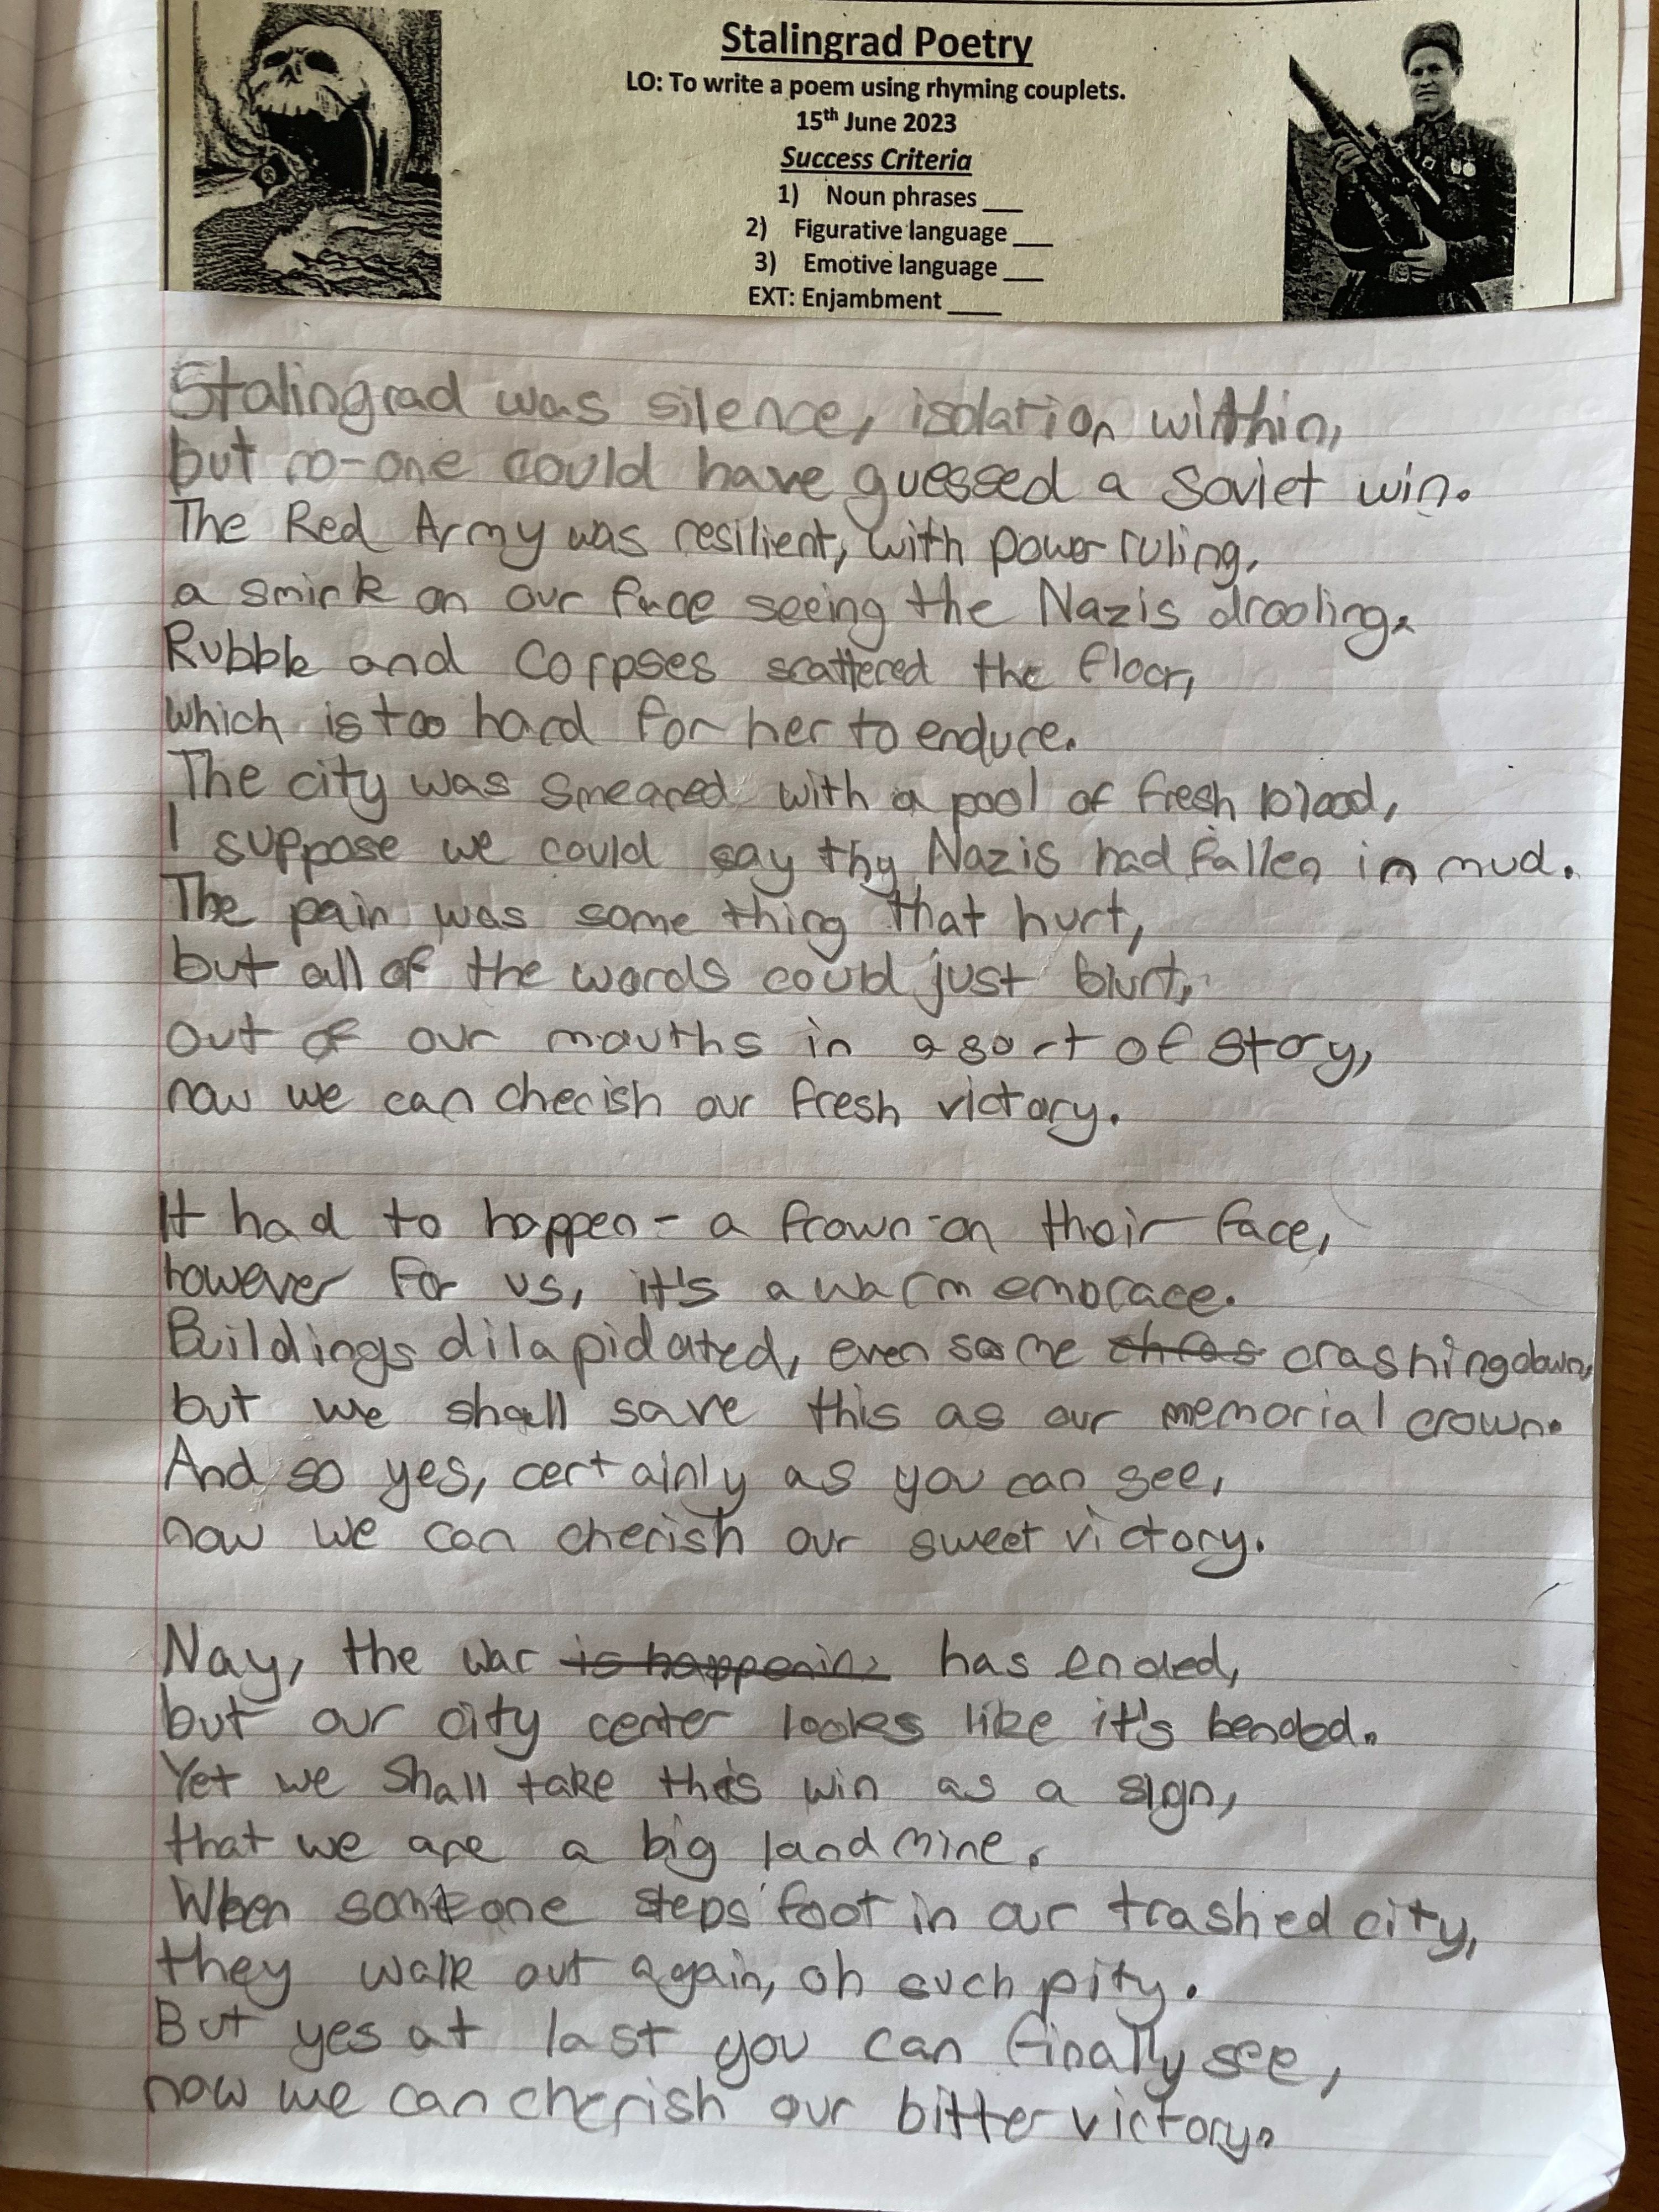 Stalingrad Poetry
LO: To write a poem using rhyming couplets.
15th June 2023
Success Criteria
1) Noun phrases ___
2) Figurative language ___
3) Emotive language ___
EXT: Enjambment ____
Stalingrad was silence, isolation within,
but no-one could have guessed a Soviet win.
The Red Army was resilient, with power ruling,
a smirk on our face seeing the Nazis drooling.
Rubble and Corpses scattered the floor,
which is too hard for her to endure.
The city was smeared with a pool of fresh blood,
I suppose we could say thy Nazis had fallen in mud.
The pain was some thing that hurt,
but all of the words could just blurt,
out of our mouths in a sort of story,
now we can cherish our fresh victory.
It had to happen - a frown - on their face,
however for us, it's a warm embrace.
Buildings dilapidated, even some crashing down,
but we shall save this as our memorial crown.
And so yes, certainly as you can see,
now we can cherish our sweet victory.
Nay, the war is happening has ended,
but our city center looks like it's bended.
Yet we shall take this win as a sign,
that we are a big land mine.
When someone steps foot in our trashed city,
they walk out again, oh such pity.
But yes at last you can finally see,
now we can cherish our bitter victory.